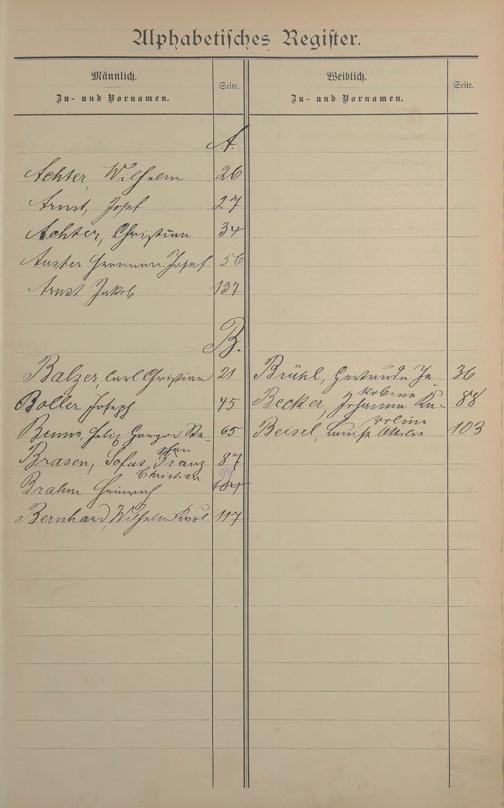 Alphabetisches Register.
Männlich.
Zu- und Vornamen.
Seite.
Weiblich.
Zu- und Vornamen.
Seite.
A.
Achter, Wilhelm 26
Arnst, Josef 27
Achter, Christian 34
Auster Hermann Josef 56
Arnst Jakob 137
B.
Balzer, Carl Christian 21
Boller Joseph 45
Benno, Felix Gregor Ste- 65
phan
Brasen, Sofus, Franz 87
Christian
Brahm Heinrich
Bernhard, Wilhelm Karl 117
Brühl, Gertruda Ja- 36
kobina
Becker, Johanna Ka- 88
rolina
Beisel, Luise Ottilie 103